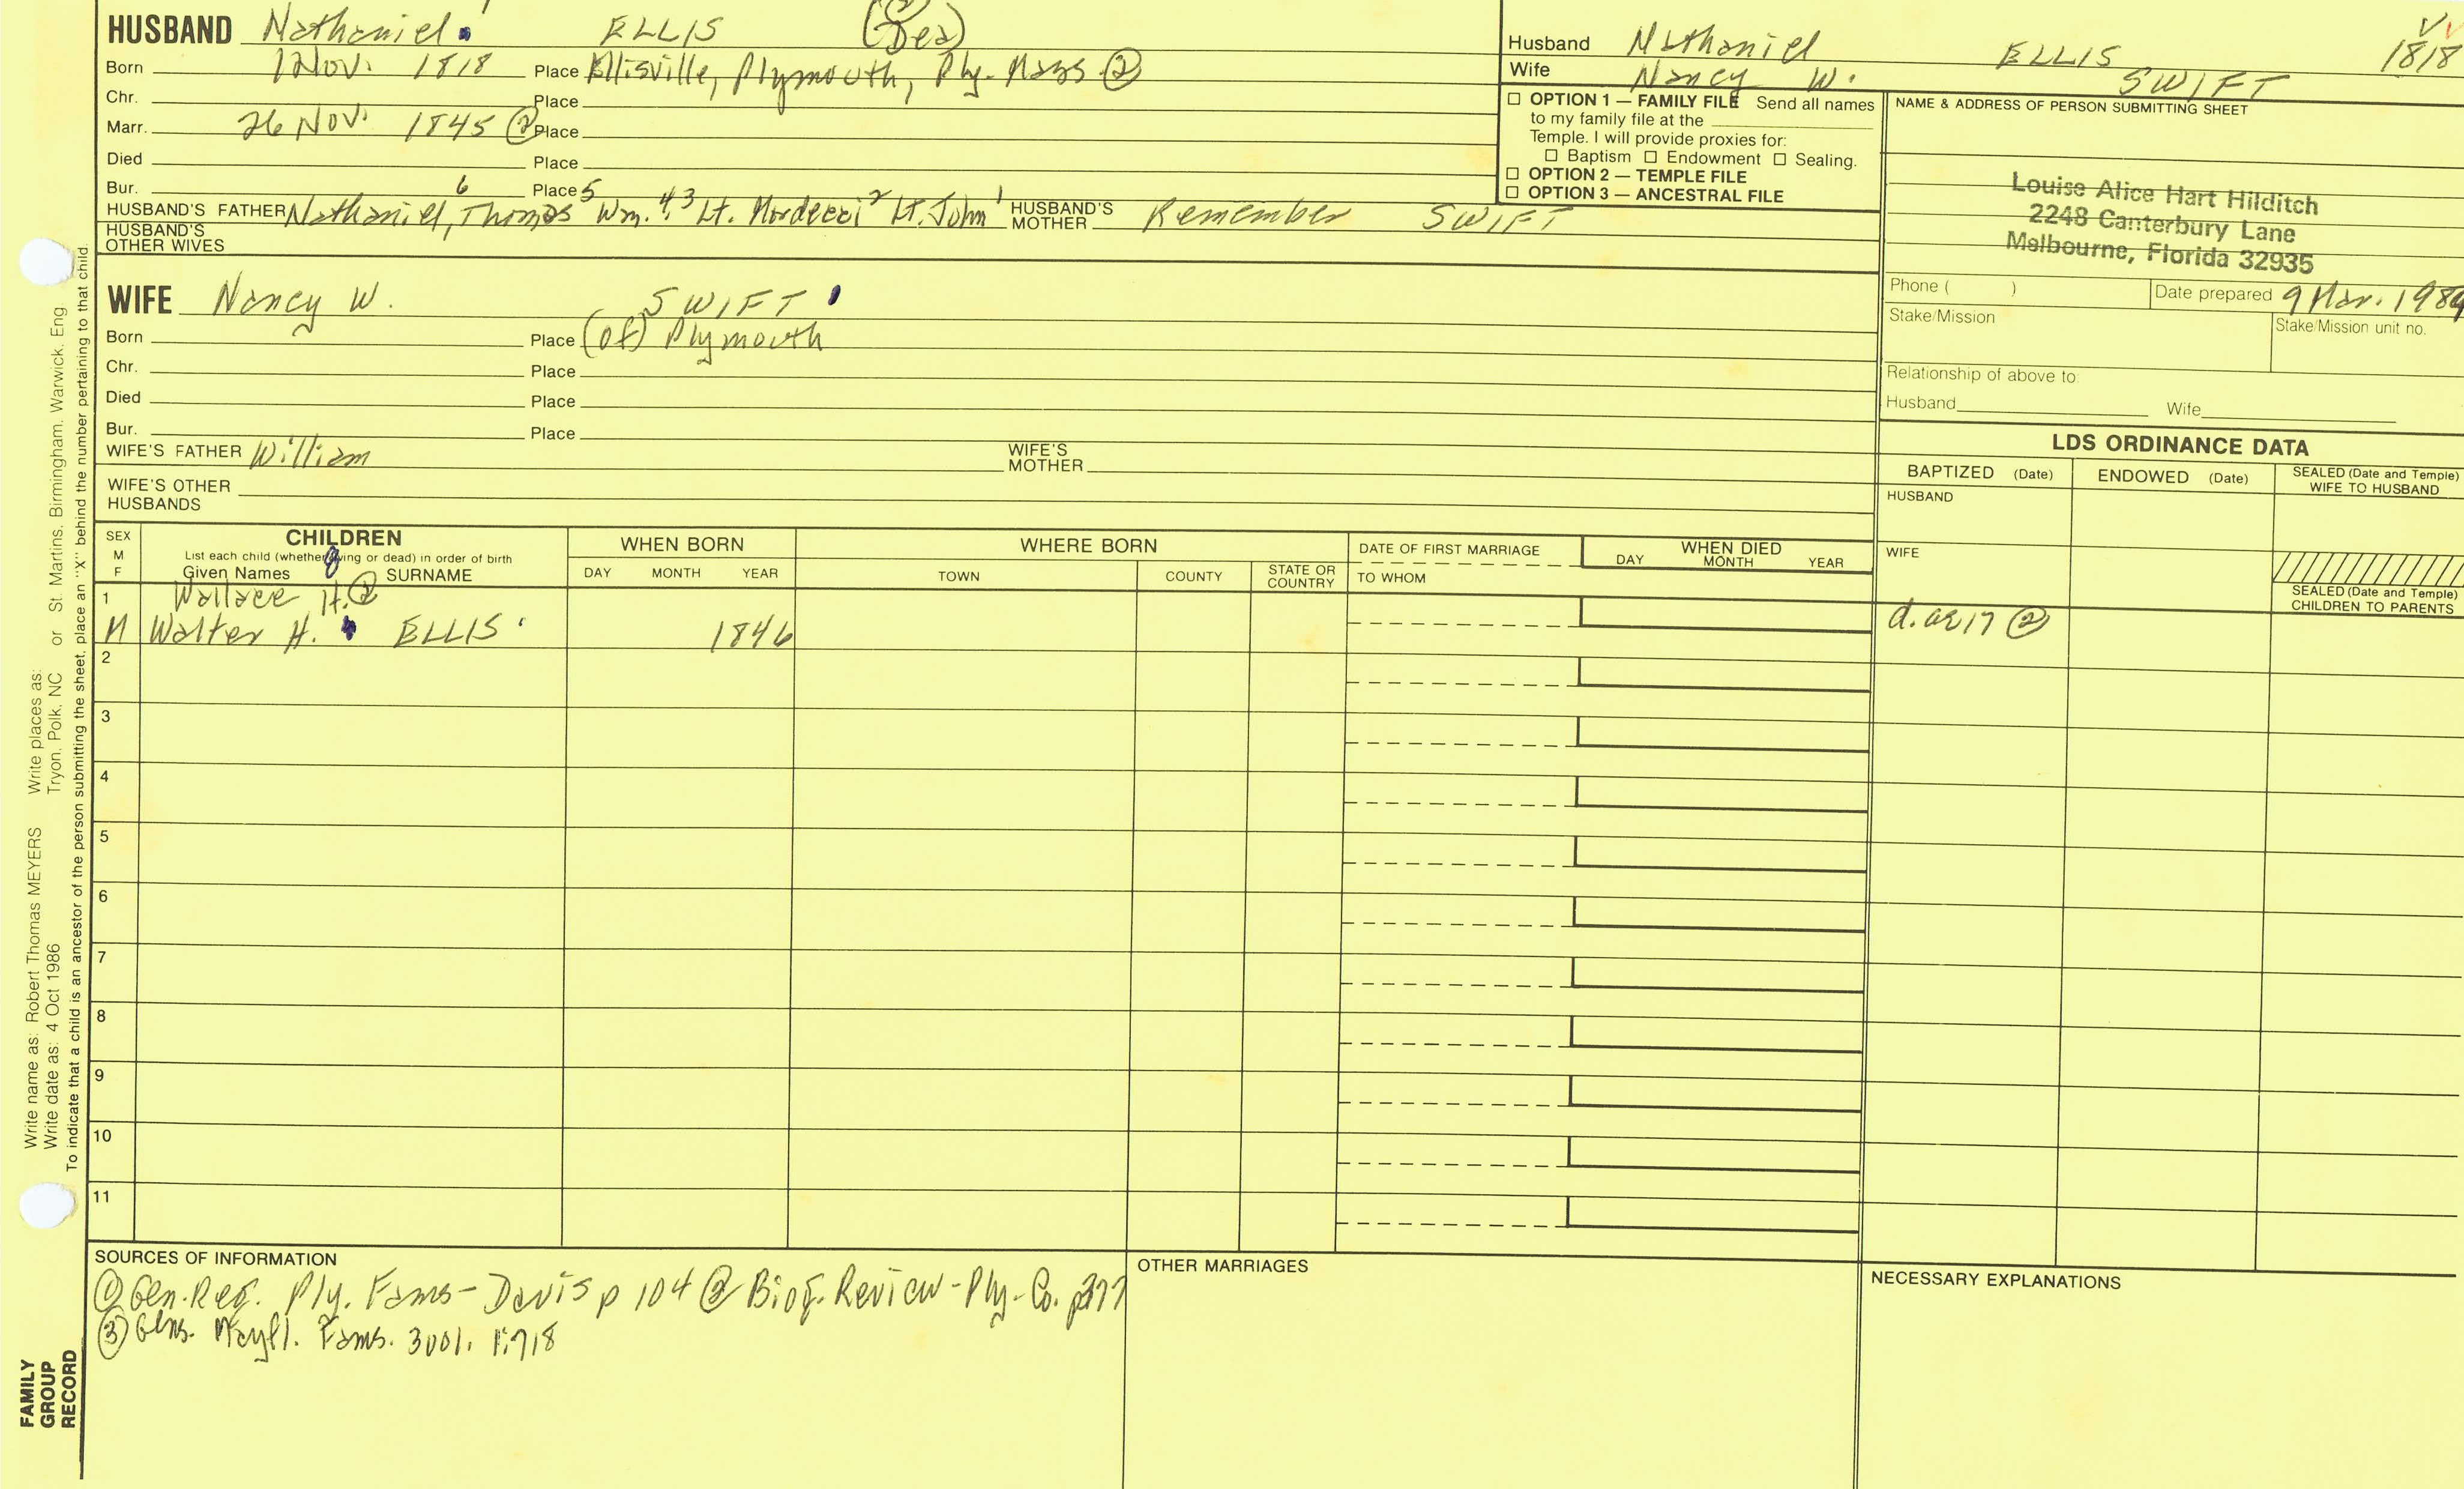 HUSBAND Nathaniel ELLIS
Born 1 Nov. 1818 Place Ellisville, Plymouth, Ply. Mass ②
Chr. Place
Marr. 26 Nov. 1845 ② Place
Died Place
Bur. Place
HUSBAND'S FATHER Nathaniel, 6 Thomas 5 Wm. 4,3 Lt. Mordecai 2 Lt. John 1 HUSBAND'S MOTHER Remember SWIFT
HUSBAND'S OTHER WIVES
Husband Nathaniel ELLIS 1818
Wife Nancy W. SWIFT
☐ OPTION 1 — FAMILY FILE Send all names
to my family file at the
Temple. I will provide proxies for:
☐ Baptism ☐ Endowment ☐ Sealing.
☐ OPTION 2 — TEMPLE FILE
☐ OPTION 3 — ANCESTRAL FILE
NAME & ADDRESS OF PERSON SUBMITTING SHEET
Louise Alice Hart Hilditch
2248 Canterbury Lane
Melbourne, Florida 32935
Phone ( ) Date prepared 9 Mar. 1989
Stake/Mission Stake/Mission unit no.
Relationship of above to:
Husband Wife
WIFE Nancy W. SWIFT
Born Place (of) Plymouth
Chr. Place
Died Place
Bur. Place
WIFE'S FATHER William WIFE'S MOTHER
WIFE'S OTHER HUSBANDS
LDS ORDINANCE DATA
BAPTIZED (Date) ENDOWED (Date) SEALED (Date and Temple) WIFE TO HUSBAND
HUSBAND
WIFE
SEALED (Date and Temple) CHILDREN TO PARENTS
SEX M F
CHILDREN
List each child (whether living or dead) in order of birth
Given Names SURNAME
WHEN BORN
DAY MONTH YEAR
WHERE BORN
TOWN COUNTY STATE OR COUNTRY
DATE OF FIRST MARRIAGE
TO WHOM
WHEN DIED
DAY MONTH YEAR
1 Wallace H. ②
M Walter H. ELLIS 1846 d. ae 17 ②
2
3
4
5
6
7
8
9
10
11
SOURCES OF INFORMATION
① Gen. Reg. Ply. Fams - Davis p 104 ② Biog. Review - Ply - Co. p377
③ Gens. Mayfl. Fams. 3001. 1:718
OTHER MARRIAGES
NECESSARY EXPLANATIONS
Write name as: Robert Thomas MEYERS Write places as:
Write date as: 4 Oct 1986 Tryon, Polk, NC or St. Martins, Birmingham, Warwick, Eng
To indicate that a child is an ancestor of the person submitting the sheet, place an "X" behind the number pertaining to that child.
FAMILY
GROUP
RECORD